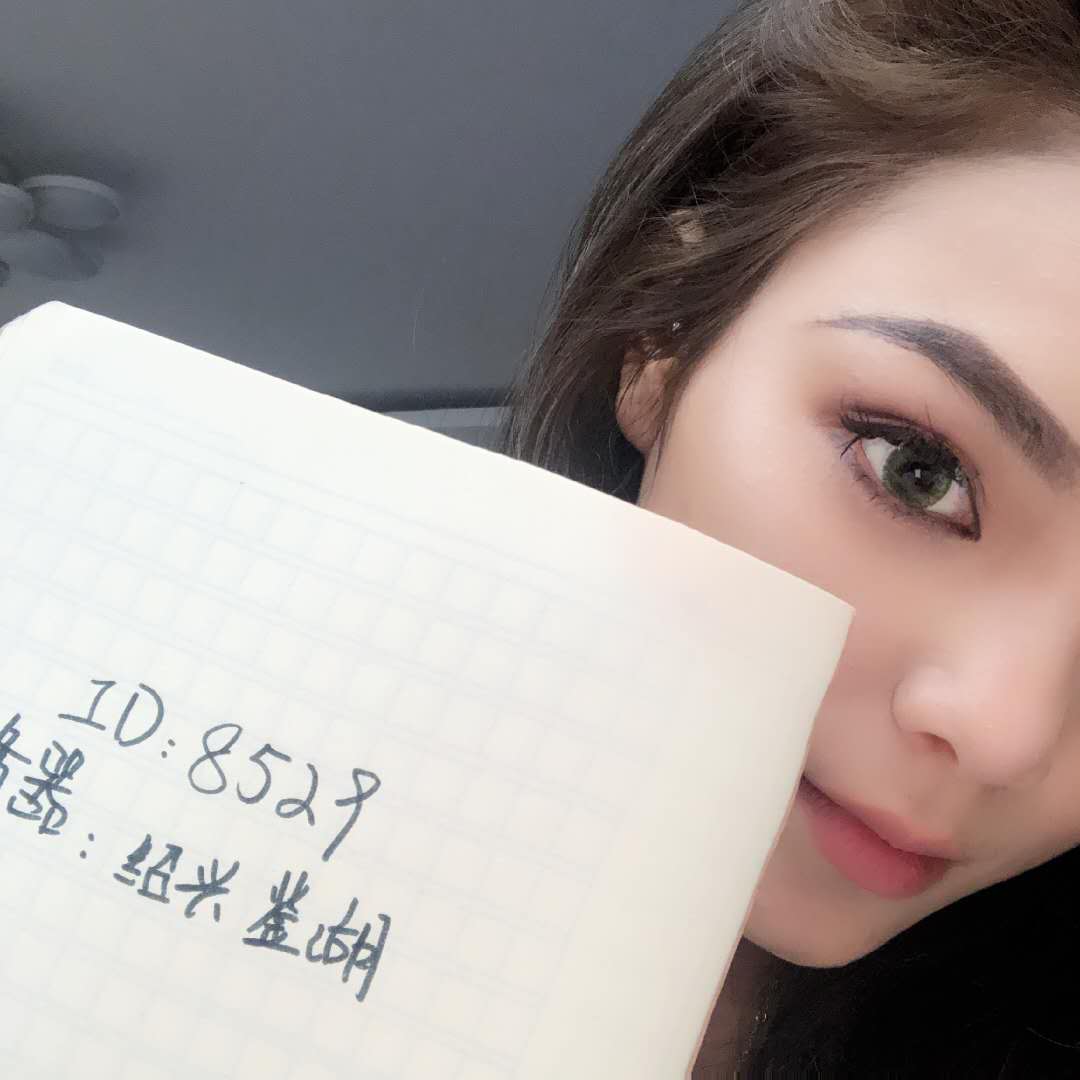 ID:8529
务器:绍兴鉴湖